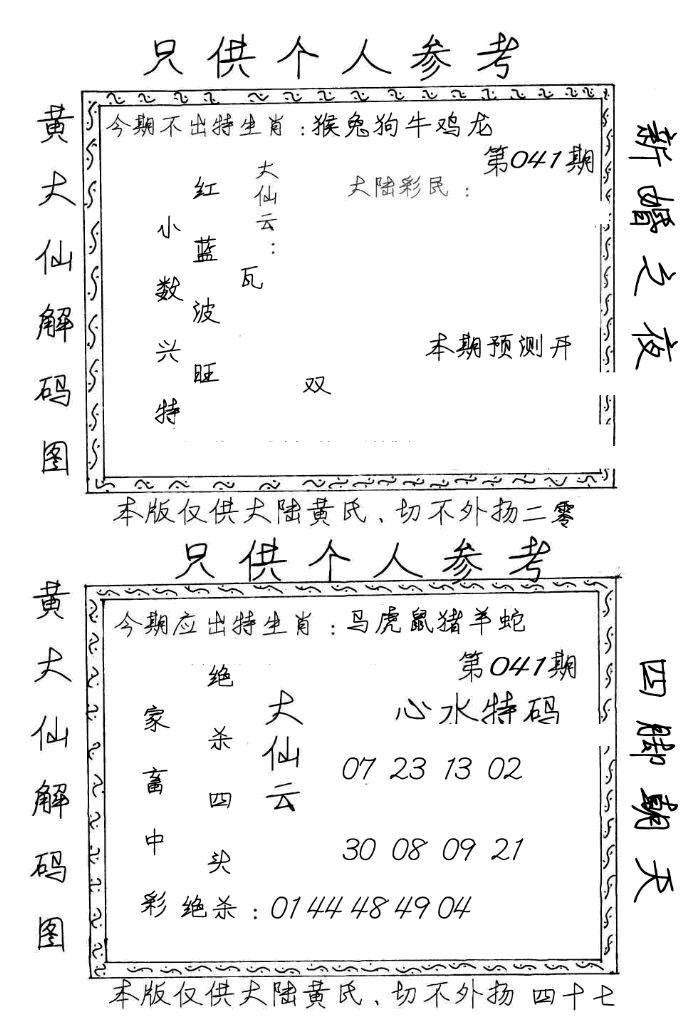 只供个人参考
黄大仙解码图
今期不出特生肖：猴兔狗牛鸡龙
第041期
大陆彩民：
大仙云：
瓦
红蓝波旺
小数兴特
双
本期预测开
新婚之夜
本版仅供大陆黄氏、切不外扬二零
只供个人参考
黄大仙解码图
今期应出特生肖：马虎鼠猪羊蛇
第041期
心水特码
大仙云
绝杀四头
家畜中彩
07 23 13 02
30 08 09 21
绝杀：01 44 48 49 04
四脚朝天
本版仅供大陆黄氏、切不外扬 四十七